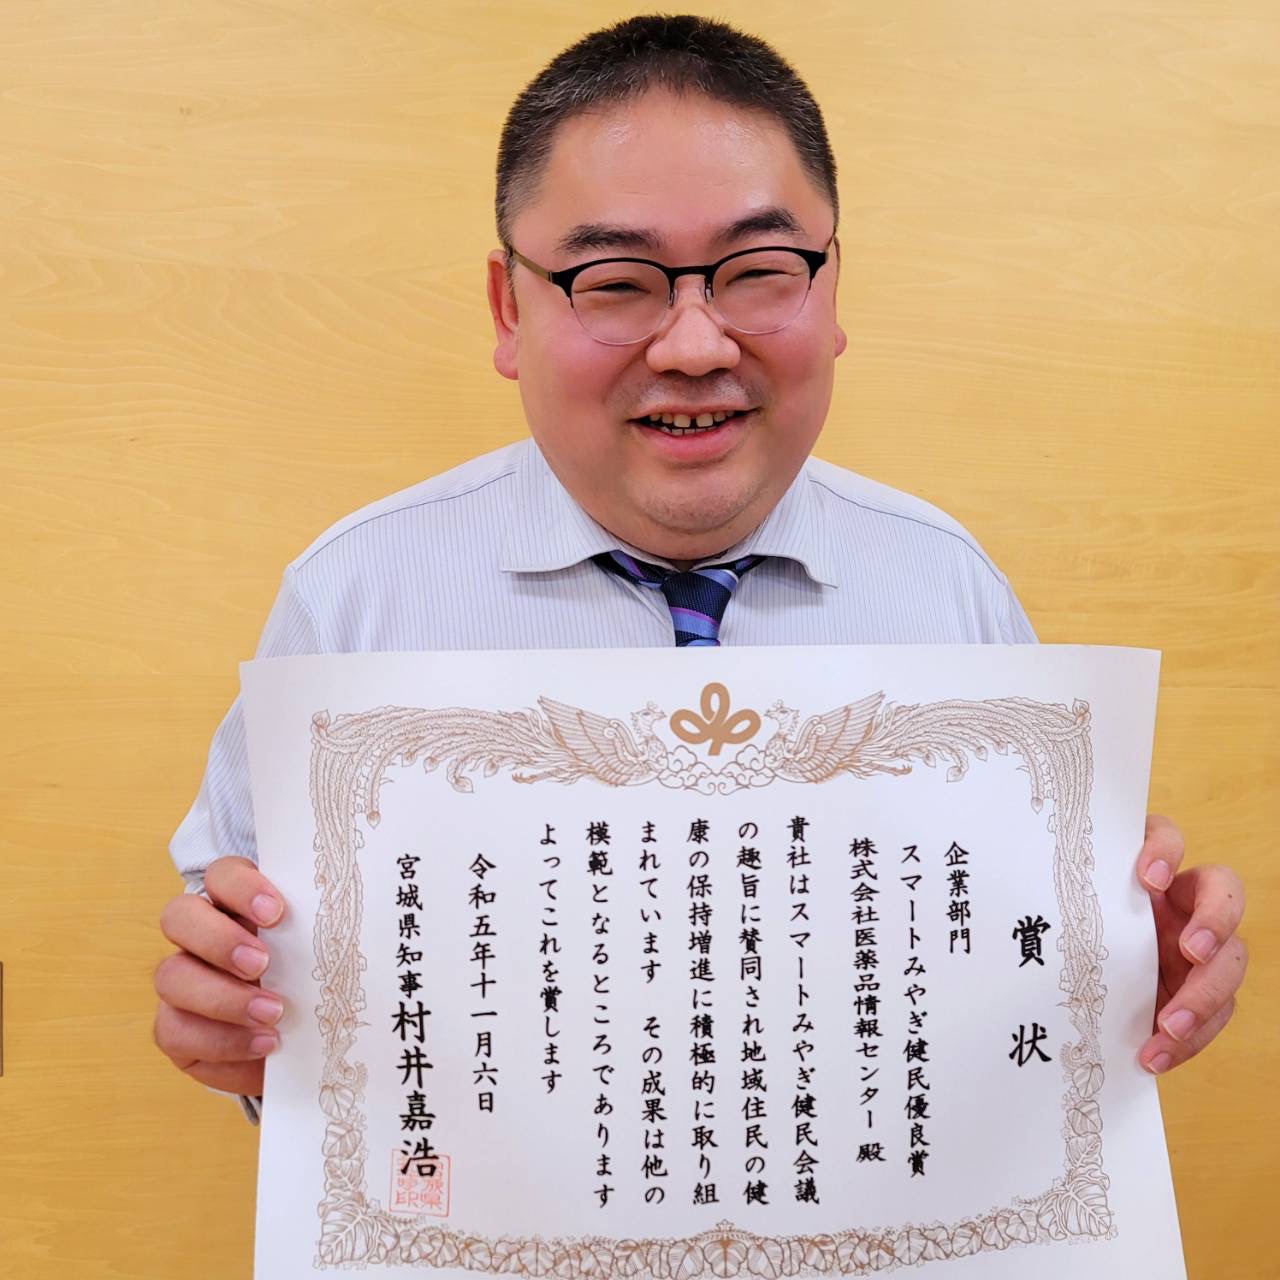 賞状
企業部門
スマートみやぎ健民優良賞
株式会社医薬品情報センター 殿
貴社はスマートみやぎ健民会議
の趣旨に賛同され地域住民の健
康の保持増進に積極的に取り組
まれています その成果は他の
模範となるところであります
よってこれを賞します
令和五年十一月六日
宮城県知事 村井嘉浩